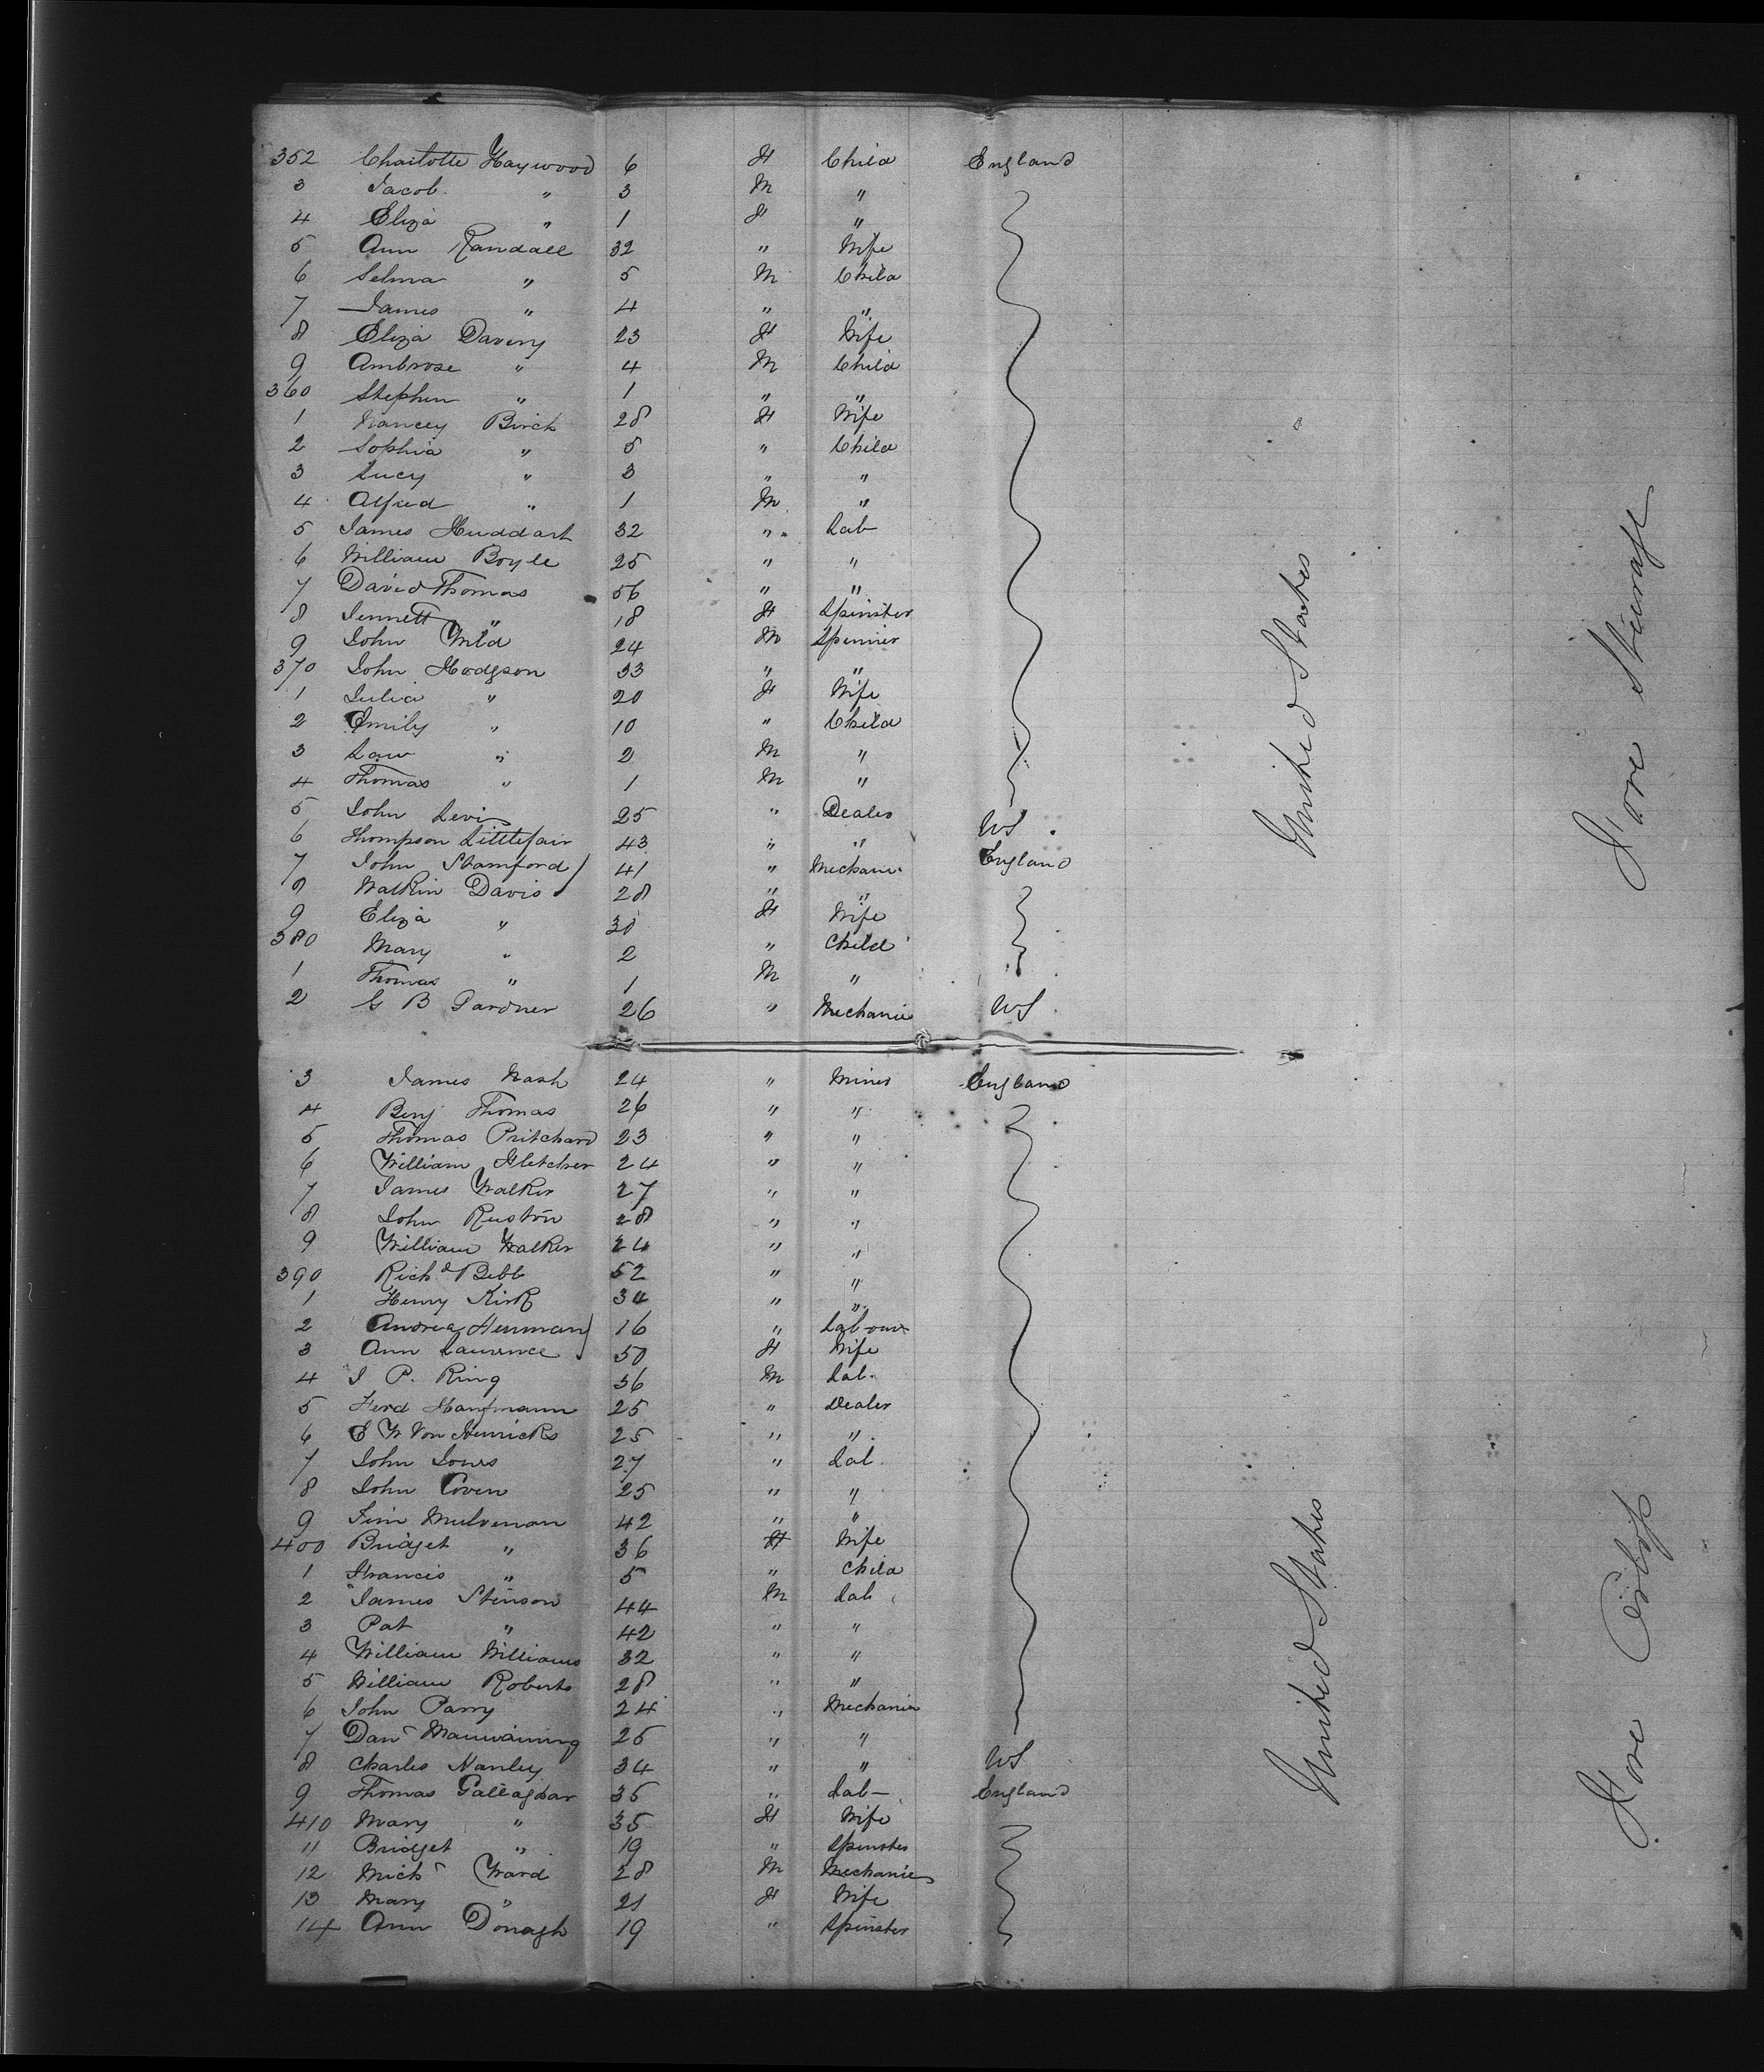 352 Charlotte Haywood 6 F Child England
3 Jacob " 3 M "
4 Eliza " 1 F "
5 Ann Randall 32 " Wife
6 Selma " 5 M Child
7 James " 4 " "
8 Eliza Daveny 23 F Wife
9 Ambrose " 4 M Child
360 Stephen " 1 " "
1 Nancey Birch 28 F Wife
2 Sophia " 5 " Child
3 Lucy " 3 " "
4 Alfred " 1 M "
5 James Huddart 32 " Lab
6 William Boyle 25 " "
7 David Thomas 56 " "
8 Jennett " 18 F Spinster
9 John Wild 24 M Spinner
370 John Hodgson 33 " "
1 Julia " 20 F Wife
2 Emily " 10 " Child
3 Law " 2 M "
4 Thomas " 1 M "
5 John Levis 25 " Dealer US
6 Thompson Littlefair 43 " "
7 John Stamford 41 " Mechanic England
8 Watkin Davis 28 " "
9 Eliza " 30 F Wife
380 Mary " 2 " Child
1 Thomas " 1 M "
2 G B Gardner 26 " Mechanic US
3 James Nash 24 " Miner England
4 Benj Thomas 26 " "
5 Thomas Pritchard 23 " "
6 William Fletcher 24 " "
7 James Walker 27 " "
8 John Ruston 28 " "
9 William Walker 24 " "
390 Richd Bebb 52 " "
1 Henry Kirk 34 " "
2 Andrea Henman 16 " Labour
3 Ann Laurence 50 F Wife
4 J P. Ring 36 M Lab.
5 Ferd Haufmann 25 " Dealer
6 E W Von Henricks 25 " "
7 John Jones 27 " Lab
8 John Coven 25 " "
9 Jim Mulvenan 42 " "
400 Bridget " 36 F Wife
1 Francis " 5 " Child
2 James Stinson 44 M Lab
3 Pat " 42 " "
4 William Williams 32 " "
5 William Roberts 28 " "
6 John Parry 24 " Mechanic
7 Danl Mauwaining 25 " "
8 Charles Hanley 34 " " US
9 Thomas Gallaghar 35 " Lab England
410 Mary " 35 F Wife
11 Bridget " 19 " Spinster
12 Michl Ward 28 M Mechanic
13 Mary " 21 F Wife
14 Ann Donagh 19 " Spinster
United States
United States
Fore Steerage
Fore